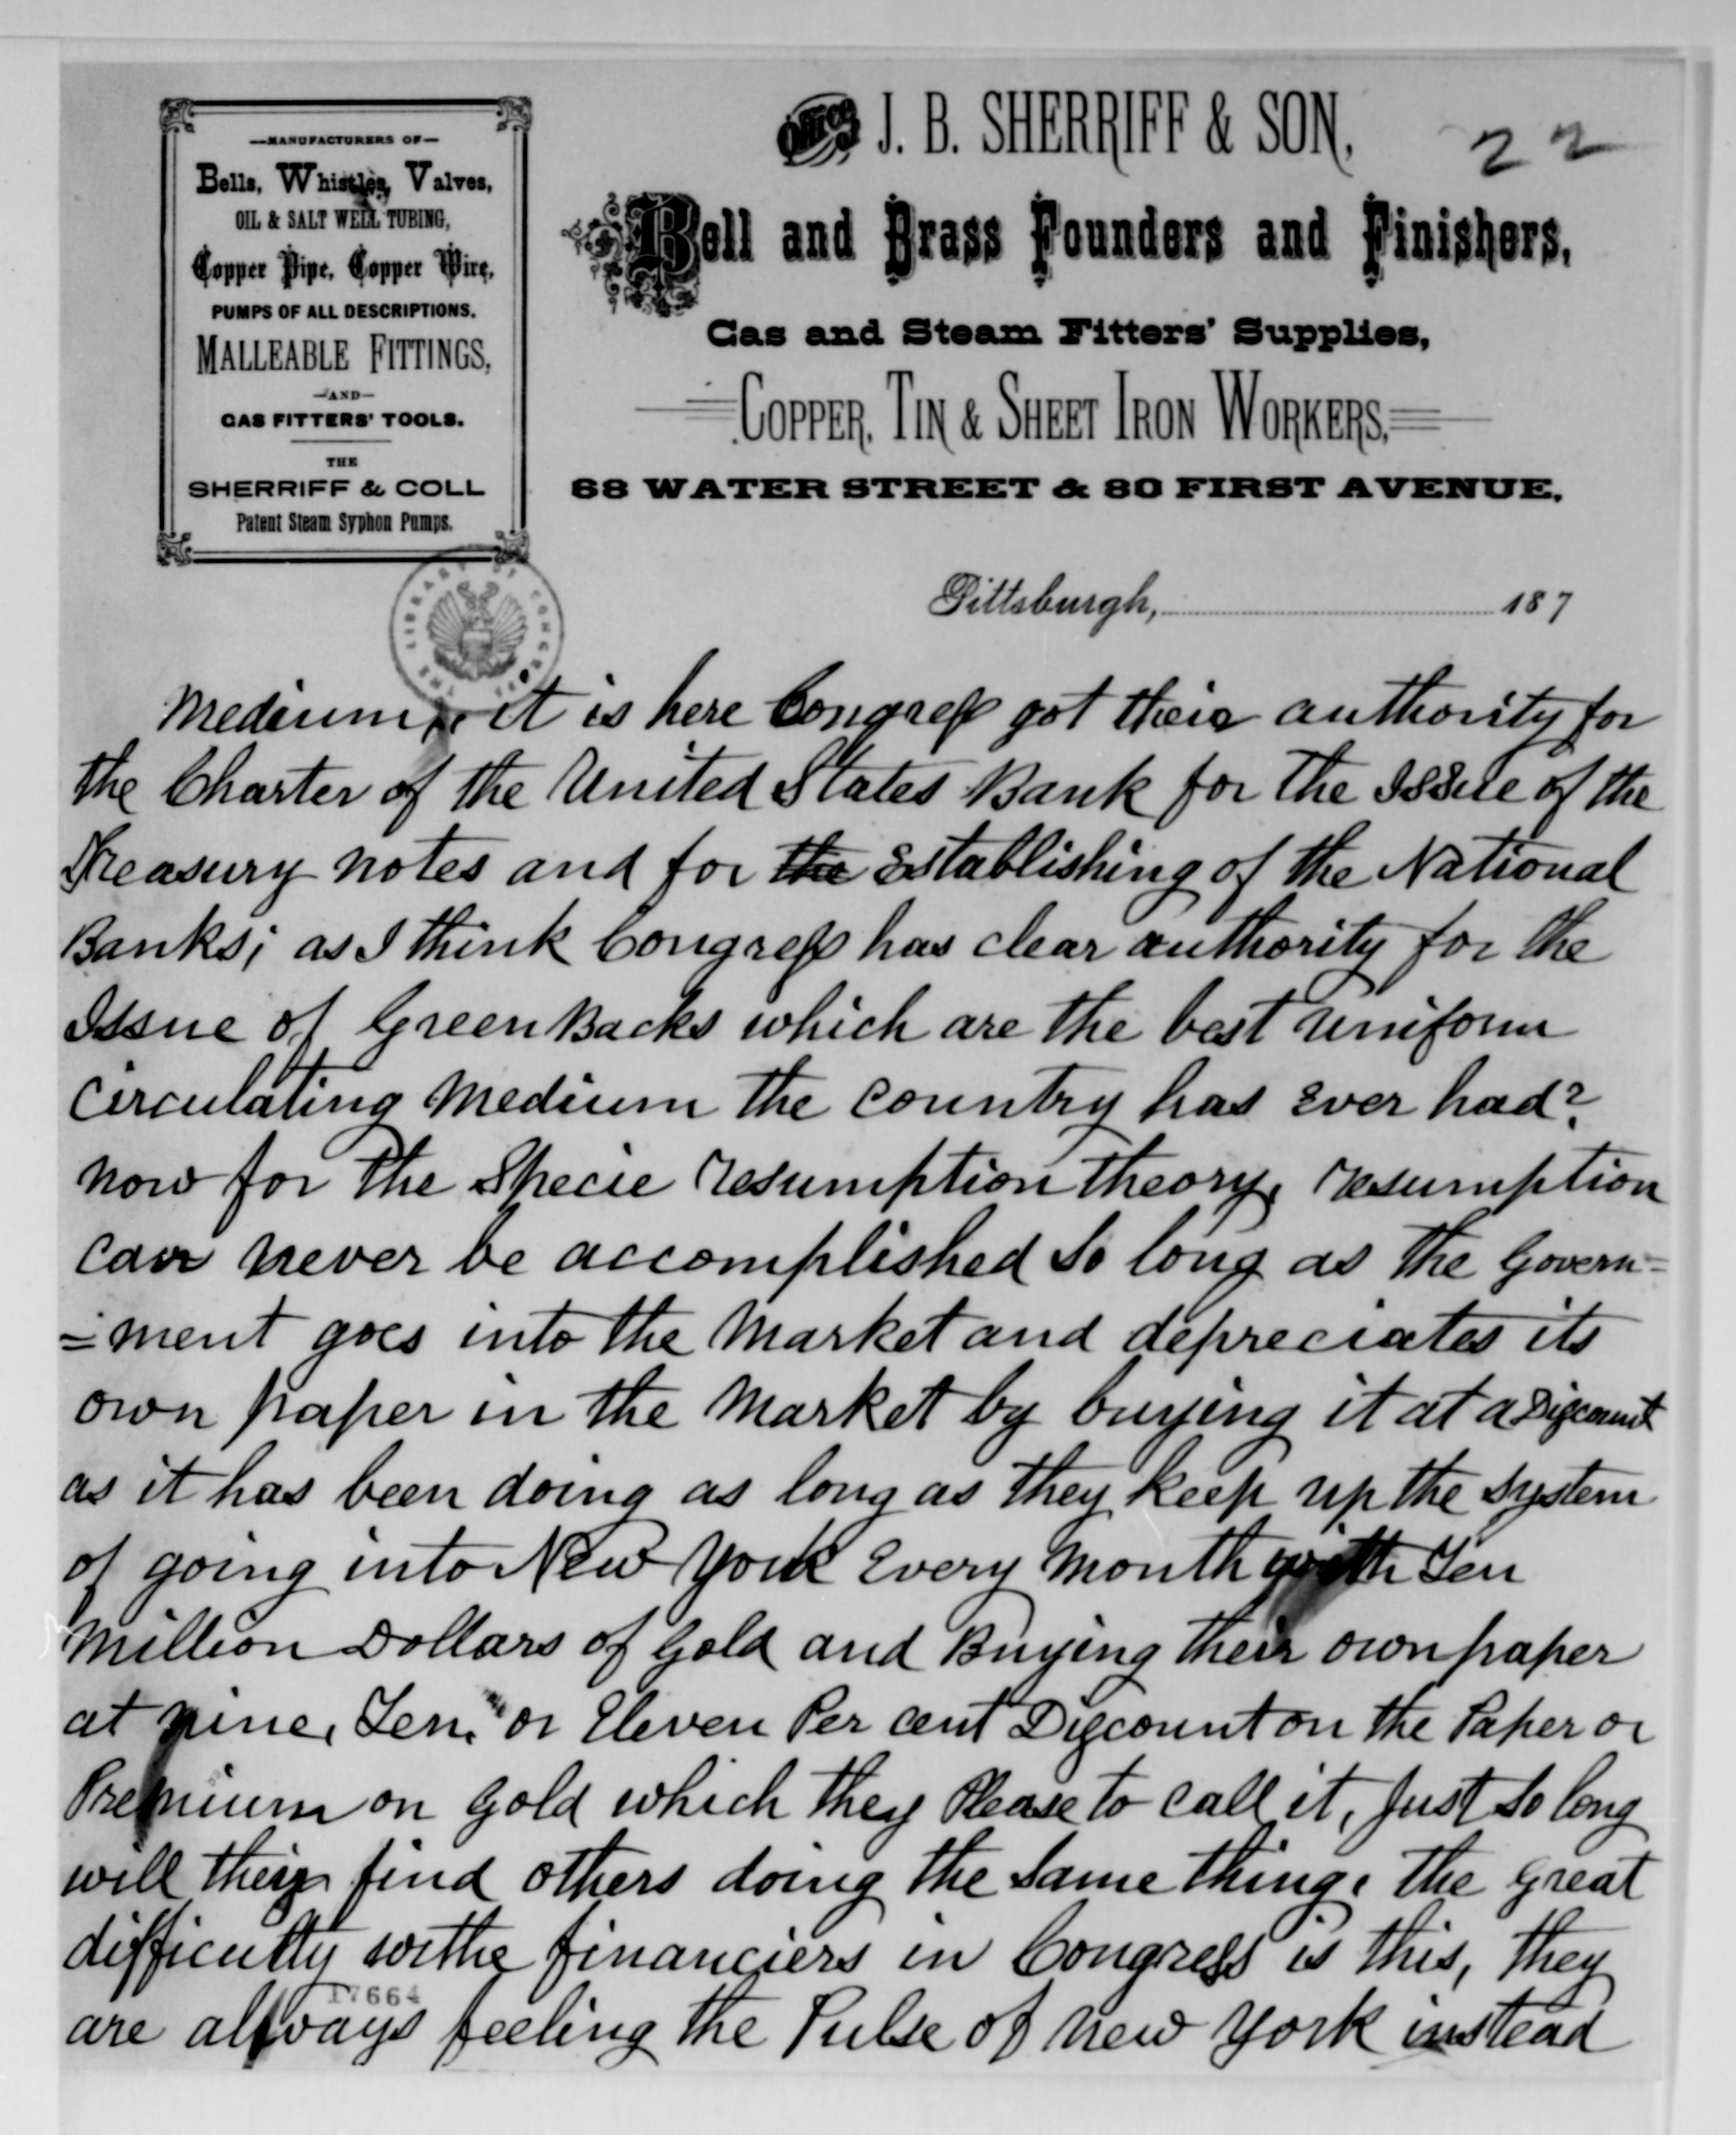 —MANUFACTURERS OF—
Bells, Whistles, Valves,
OIL & SALT WELL TUBING,
Copper Pipe, Copper Wire,
PUMPS OF ALL DESCRIPTIONS.
MALLEABLE FITTINGS,
—AND—
GAS FITTERS' TOOLS.
THE
SHERRIFF & COLL
Patent Steam Syphon Pumps.
J. B. SHERRIFF & SON,
22
Bell and Brass Founders and Finishers,
Gas and Steam Fitters' Supplies,
COPPER, TIN & SHEET IRON WORKERS,
68 WATER STREET & 80 FIRST AVENUE,
Pittsburgh, 187
THE LIBRARY OF CONGRESS
Medium, it is here Congress got their authority for
the Charter of the United States Bank for the Issue of the
Treasury notes and for the Establishing of the National
Banks; as I think Congress has clear authority for the
Issue of GreenBacks which are the best uniform
Circulating Medium the country has Ever had?
now for the Specie resumption theory, resumption
can never be accomplished So long as the Govern=
=ment goes into the Market and depreciates its
own paper in the Market by buying it at a Discount
as it has been doing as long as they keep up the System
of going into New York Every Month with Ten
Million Dollars of Gold and Buying their own paper
at nine, Ten, or Eleven Per cent Discount on the Paper or
Premium on Gold which they Please to call it, Just So long
will they find others doing the Same thing, the great
difficulty withe financiers in Congress is this, they
17664
are allways feeling the Pulse of New York instead